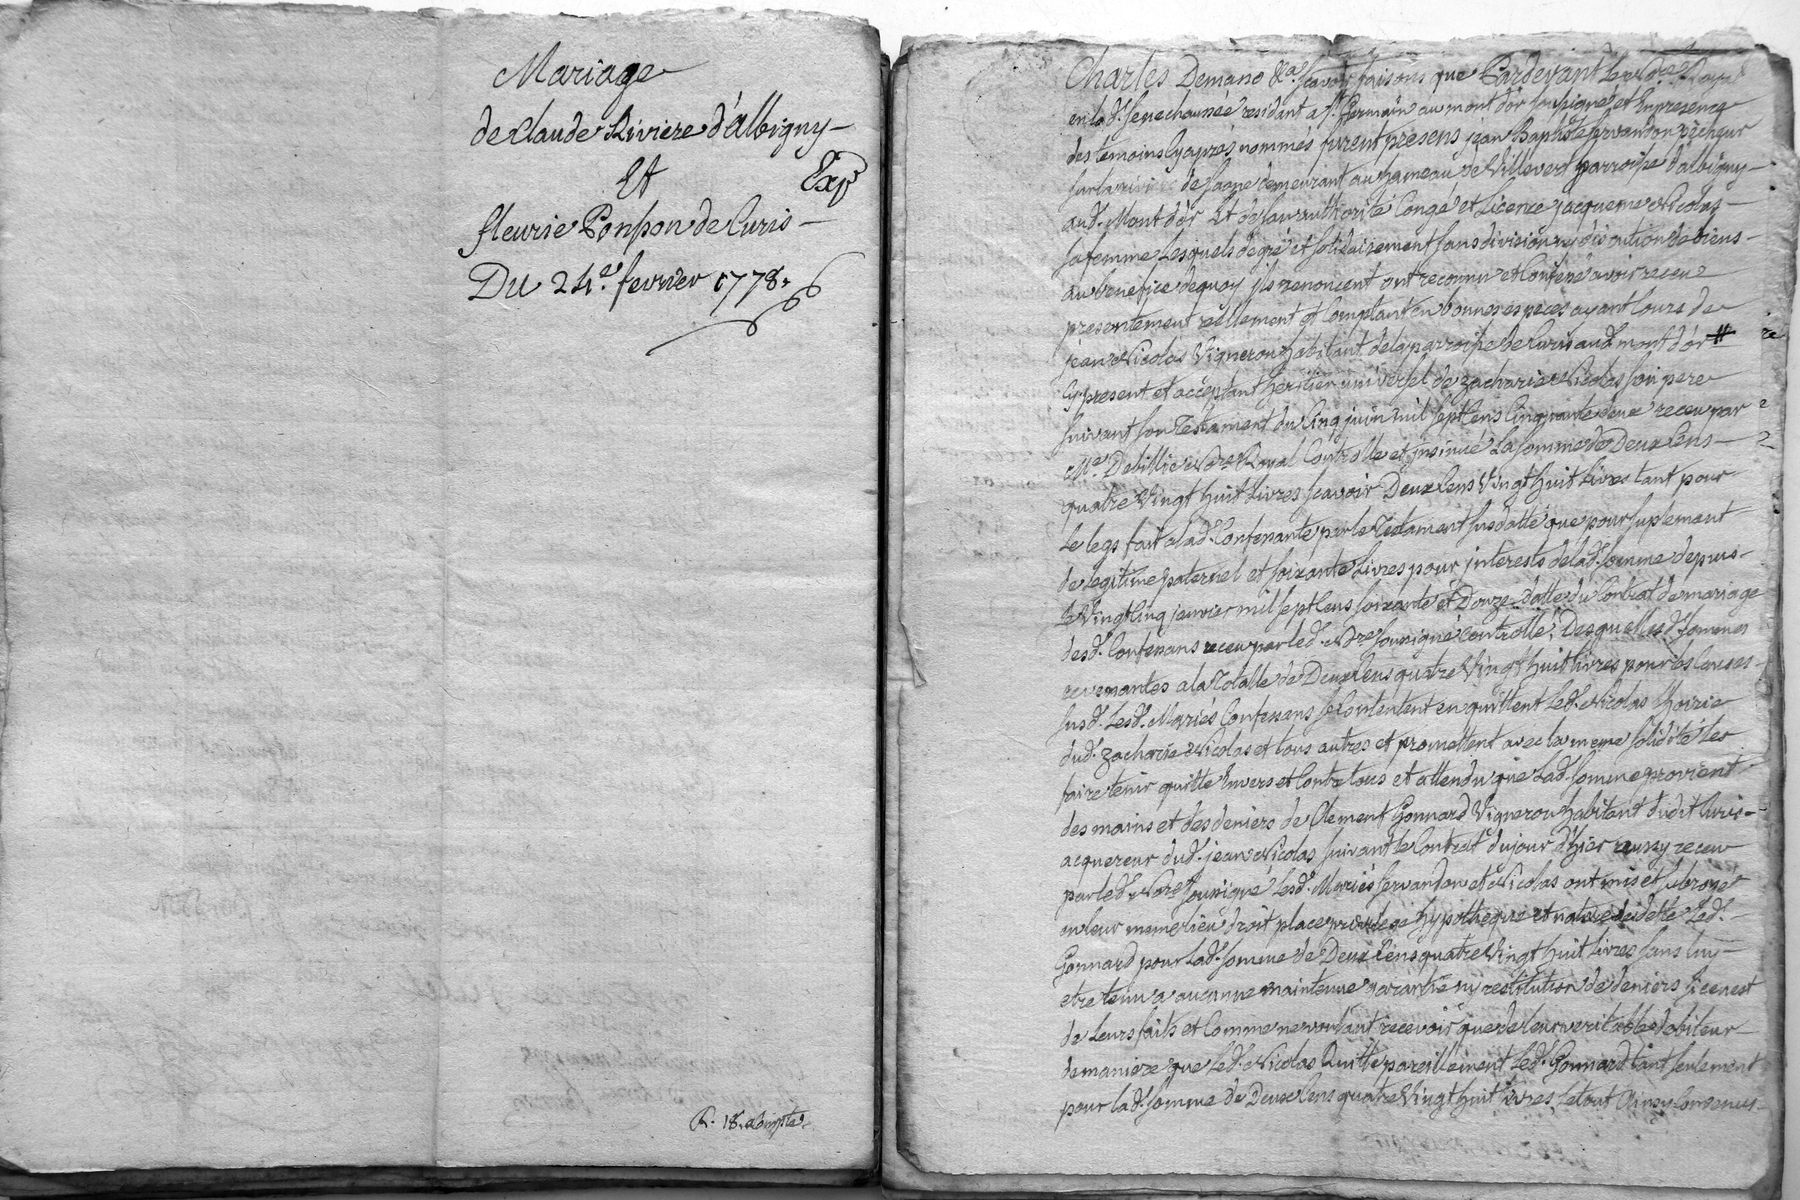 Mariage
de Claude Riviere d'Albigny
Et
Exp
fleurie Ponson de Curis
Du 24e. fevrier 1778.
R. 18.
Charles Demano &a scavoir faisons que Pardevant Le Nore Royal
en lad. senechaussée residant a St. Germain au mont d'or soussigné et En presence
des temoins cyaprés nommés furent presens jean Baptiste servandon pêcheur
sur la rivière de saone demeurant au hameau de Villevert parroisse d'albigny
aud. Mont d'or Et de son authorité Congé et Licence jacqueme Nicolas
sa femme Lesquels de gré et solidairement sans division ny discution de biens
au benefice dequoy ils renoncent ont reconnu et Confessé avoir receu
presentement reellement et Comptant en bonnes especes ayant Cours de
jean Nicolas Vigneron habitant de la parroisse de Curis aud. mont d'or #
Cy present et acceptant heritier universel de zacharie Nicolas son pere
suivant son Testament du Cinq juin mil sept Cens Cinquante deux receu par
Me. Debillie Nore Royal Controllé et insinué La somme de Deux Cens
quatre Vingt huit Livres scavoir Deux Cens Vingt huit Livres tant pour
Le legs fait a lad. Confessante par le Testament susdatté que pour suplement
de legitime paternel et soixante Livres pour interests de lad. somme depuis
Le Vingt Cinq janvier mil sept Cens soixante et Douze datte du Contrat de mariage
desd. Confessans receu par led. Nore soussigné Controllé, Desquelles d. sommes
revenantes a la Totalle de Deux Cens quatre Vingt huit Livres pour les Causes
susd. Lesd. Mariés Confessans se Contentent en quittent Led. Nicolas hoirie
dud. zacharie Nicolas et tous autres et promettent avec la meme solidité Les
faire tenir quitte Envers et Contre tous et attendu que Lad. somme provient
des mains et des deniers de Clement Gonnard Vigneron habitant dudit Curis
acquereur dud. jean Nicolas suivant le Contrat du jour d'hier aussy receu
par led. Nore soussigné Lesd. Mariés servandon et Nicolas ont mis et subrogé
en leur meme lieu droit place privilege hypotheque et nature de dette Led.
Gonnard pour Lad. somme de Deux Cens quatre Vingt huit Livres sans luy
etre tenu a aucunne maintenue garantie ni restitution de deniers si ce n'est
de Leurs faits et Comme ne voulant recevoir que de leur veritable debiteur
de maniere que Led. Nicolas Quitte pareillement Led. Gonnard tant seulement
pour lad. somme de Deux Cens quatre Vingt huit Livres, Le tout Ainsy Convenu